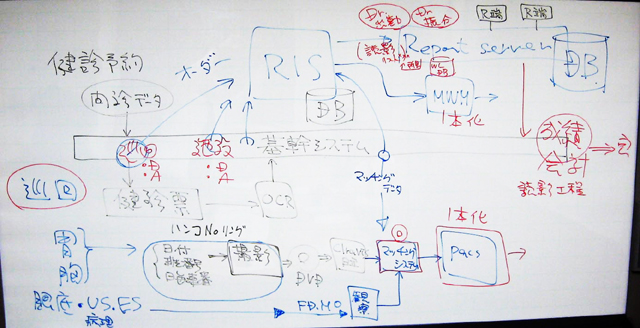 Dr. Dr.
R端 R端
Report server
健診予約
オーダー
RIS
DB
DB
内診データ
MWM
1本化
巡回 施設 基幹システム
:DA :DA
マッチング
データ
会計
読影工程
巡回
健診票
OCR
ハンコNoリング
1本化
胃
胸
日付
撮影
DVD
マッチング
システム
Pacs
眼底・US.ES
病理
FD.MO